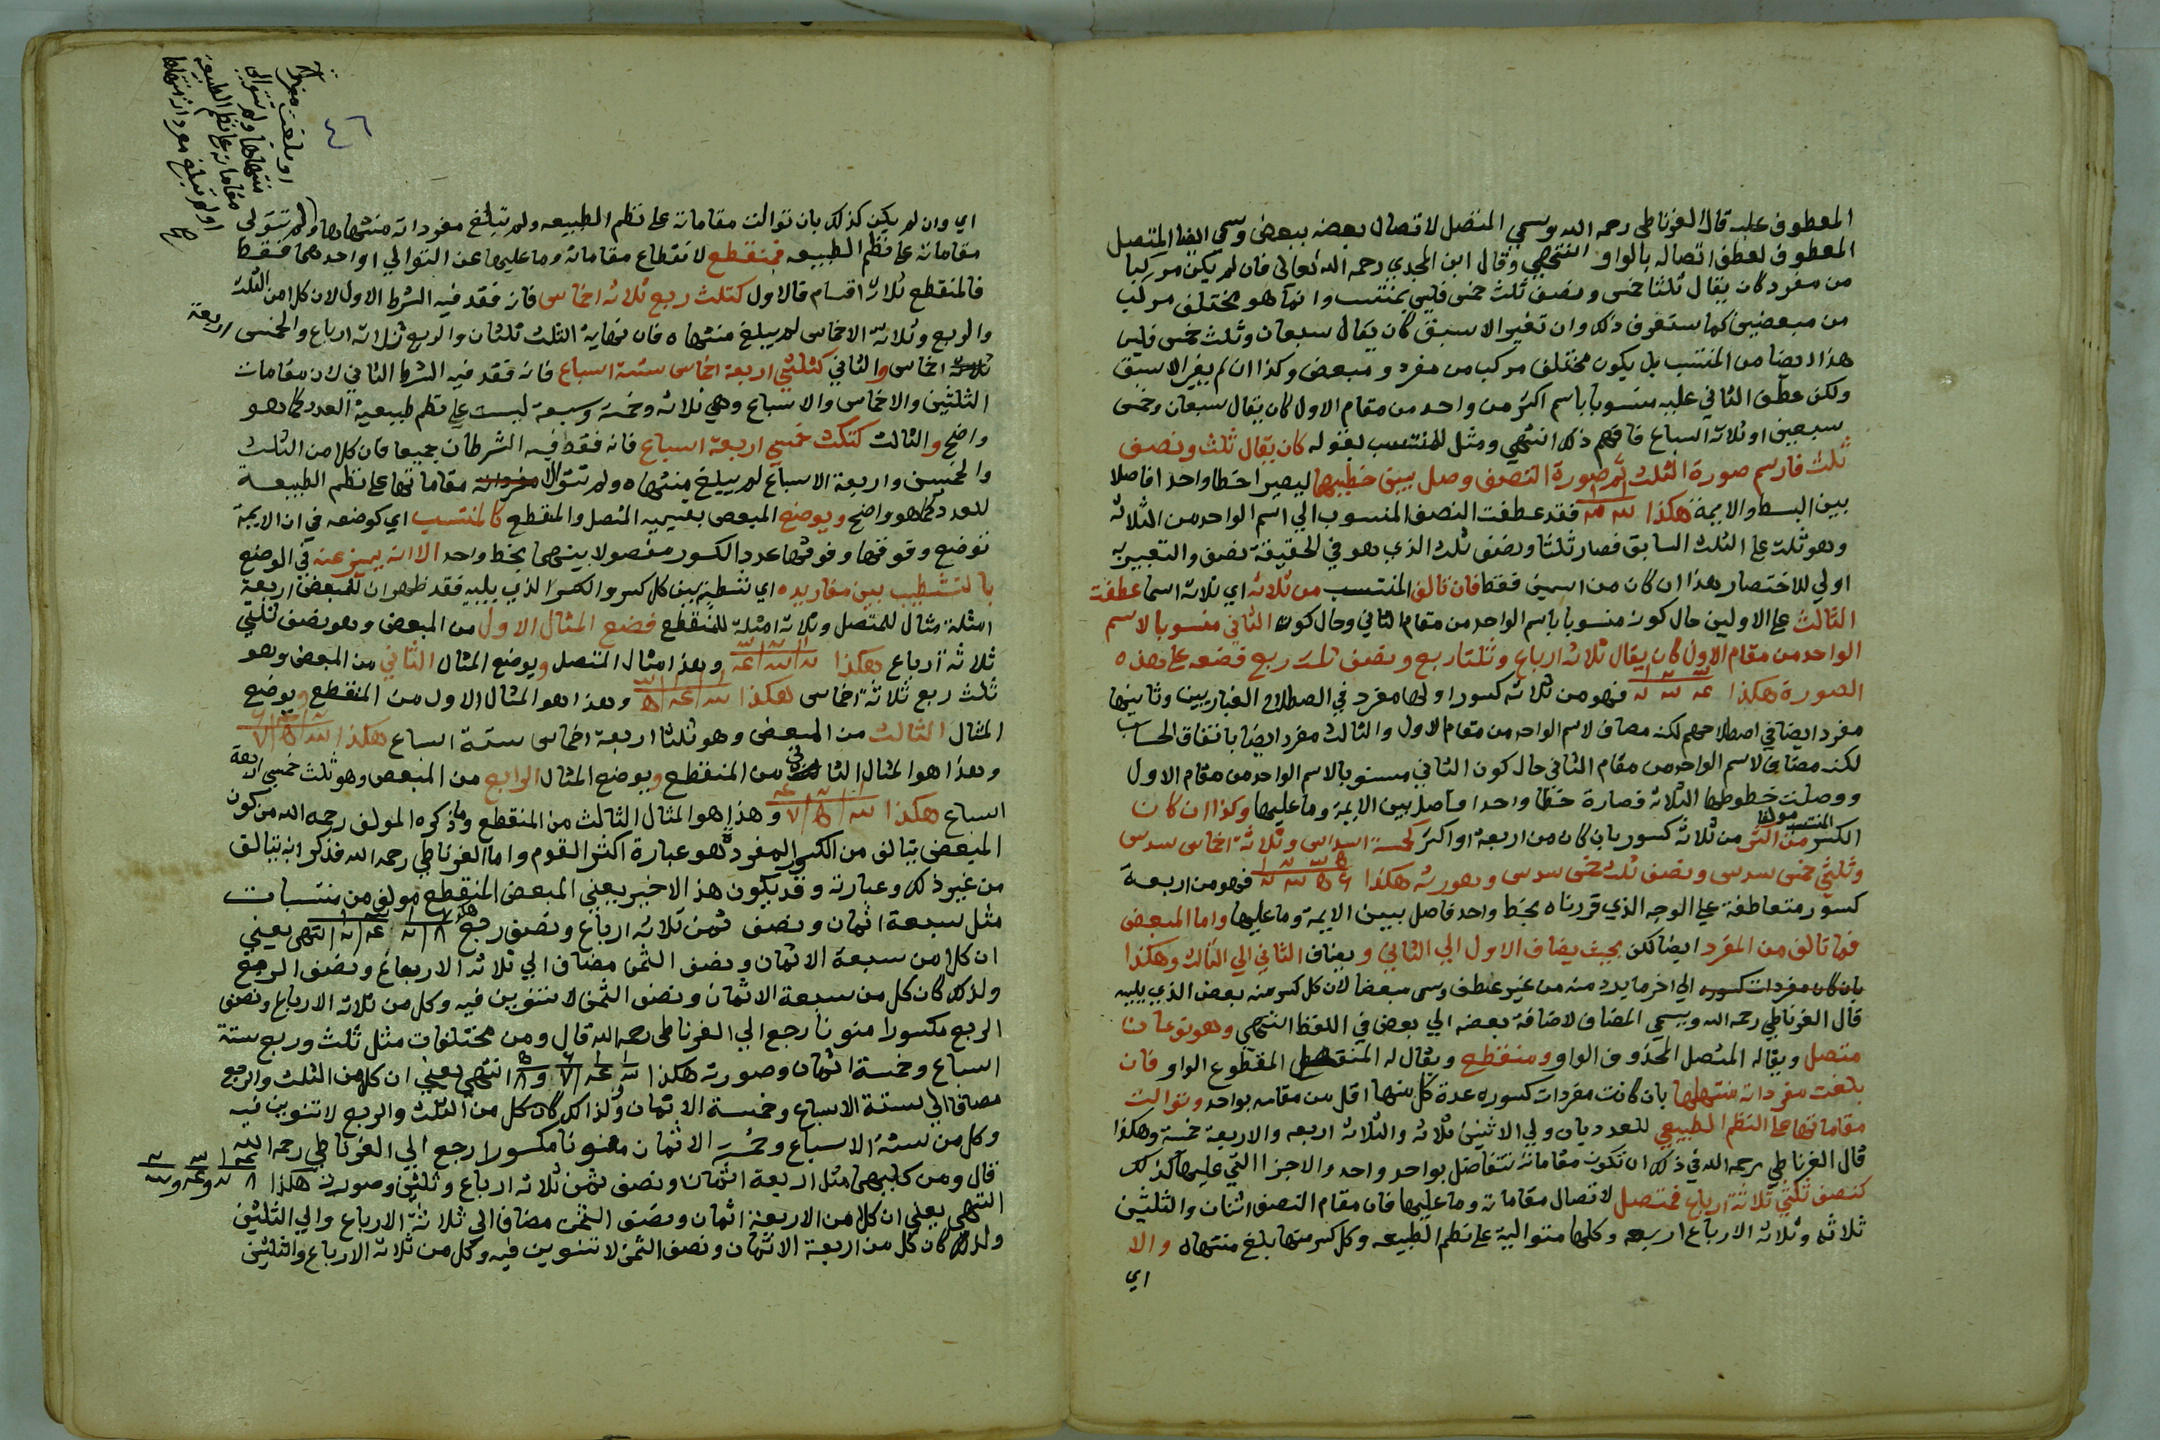 المعطوف عليه قال الغرناطي رحمه الله ويسمي المتصل لاتصال بعضه ببعض وسمي ايضا المتصل
المعطوف لعطف اتصاله بالواو انتهي وقال ابن المجدي رحمه الله تعالي فان لم يكن مركبا
من مفرد كان يقال ثلثا خمس ونصف ثلث خمس فليس بمنتسب وانما هو مختلف مركب
من مبعضين كما ستعرف ذلك وان تغير الاسبق كان يقال سبعان وثلث خمس فليس
هذا ايضا من المنتسب بل يكون مختلف مركب من مفرد ومبعض وكذا ان لم يغير الاسبق
ولكن عطف الثاني عليه منسوبا باسم اكثر من واحد من مقام الاول كان يقال سبعان وخمس
سبعين او ثلاثة اسباع فافهم ذلك انتهي ومثل للمنتسب بقوله كان يقال ثلث ونصف
ثلث فارسم صورة الثلث ثم صورة النصف وصل بين خطيهما ليصيرا خطا واحدا فاصلا
بين البسط والايمة هكذا فقد عطفت النصف المنسوب الي اسم الواحد من الثلاثة
وهو ثلث علي الثلث السابق فصار ثلثا ونصف ثلث الذي هو في الحقيقة نصف والتعبير به
اولي للاختصار هذا ان كان من اسمين فقط فان تالف المنتسب من ثلاثة اي ثلاثة اسما عطفت
الثالث علي الاولين حال كونه منسوبا باسم الواحد من مقام الثاني وحال كون الثاني منسوبا لاسم
الواحد من مقام الاول كان يقال ثلاثة ارباع وثلثا ربع ونصف ثلث ربع فضعه علي هذه
الصورة هكذا فهو من ثلاثة كسور اولها مفرد في اصطلاح الغباريين وثانيها
مفرد ايضا في اصطلاحهم لكنه مضاف لاسم الواحد من مقام الاول والثالث مفرد ايضا باتفاق الحساب
لكنه مضاف لاسم الواحد من مقام الثاني حال كون الثاني منسوبا لاسم الواحد من مقام الاول
ووصلت خطوطها الثلاثة فصارة خطا واحدا فاصل بين الايمة وما عليها وكذا ان كان
الكسر المنتسب مولفا من اكثر من ثلاثة كسور بان كان من اربعة او اكثر كخمسة اسداس وثلاثة اخماس سدس
وثلثي خمس سدس ونصف ثلث خمس سدس وصورته هكذا فهو من اربعة
كسور متعاطفة علي الوجه الذي قررناه بخط واحد فاصل بين الايمة وما عليها واما المبعض
فما تالف من المفرد ايضا لكن بحيث يضاف الاول الي الثاني ويضاف الثاني الي الثالث وهكذا
بان كان مفردات كسوره الي اخر ما يرد منه من غير عطف وسمي مبعضا لان كل كسر منه بعض الذي يليه
قال الغرناطي رحمه الله ويسمي المضاف لاضافة بعضه الي بعض في اللفظ انتهي وهو نوعان
متصل ويقاله المتصل المحذوف الواو ومنقطع ويقال له المنقطع المقطوع الواو فان
بلغت مفرداته منتهاها بان كانت مفردات كسوره عدة كل منها اقل من مقامه بواحد وتوالت
مقاماتها علي النظم الطبيعي للعدد بان ولي الاثنين ثلاثة والثلاثة اربعه والاربعة خمسة وهكذا
قال الغرناطي رحمه الله في ذلك ان تكون مقاماته تتفاضل بواحد واحد والاجزا التي عليها كذلك
كنصف ثلثي ثلاثة ارباع فمتصل لاتصال مقاماته وما عليها فان مقام النصف اثنان والثلثين
ثلاثة وثلاثة الارباع اربعه وكلها متوالية علي نظم الطبيعه وكل كسر منها بلغ منتهاه والا
اي
٤٦
او بلغت مفرداته
منتهاها ولم تتوالي
مقاماته علي نظم الطبيعه
او لم تبلغ مفرداته منتهاها
صح
اي وان لم يكن كذلك بان توالت مقاماته علي نظم الطبيعه ولم تبلغ مفرداته منتهاها ولم تتوالي
مقاماته علي نظم الطبيعه فمنقطع لانقطاع مقاماته وما عليها عن التوالي او احدهما فقط
فالمنقطع ثلاثة اقسام فالاول كثلث ربع ثلاثة اخماس فانه فقد فيه الشرط الاول لان كلا من الثلث
والربع وثلاثة الاخماس لم يبلغ منتهاه فان نهاية الثلث ثلثان والربع ثلاثة ارباع والخمس اربعة
اخماس والثاني كثلثي اربعة اخماس ستة اسباع فانه فقد فيه الشرط الثاني لان مقامات
الثلثين والاخماس والاسباع وهي ثلاثة وخمسة وسبعة ليست علي نظم طبيعية العدد كما هو
واضح والثالث كثلث خمسي اربعة اسباع فانه فقط فيه الشرطان جميعا فان كلا من الثلث
والخمسين واربعة الاسباع لم يبلغ منتهاه ولم تتوالا مفرداته مقاماتها علي نظم الطبيعة
للعدد كما هو واضح ويوضع المبعض بقسميه المتصل والمنقطع كالمنتسب اي كوضعه في ان الايمة
توضع وفوقها وفوقها عدد الكسور مفصولا بينهما بخط واحد الا انه يميز عنه في الوضع
بالتشطيب بين مفاريده اي تشطيب بين كل كسر والكسر الذي يليه فقد ظهر ان للمبعض اربعة
امثلة مثال للمتصل وثلاثة امثلة للمنقطع فضع المثال الاول من المبعض وهو نصف ثلثي
ثلاثة ارباع هكذا وهذا مثال المتصل ويوضع المثال الثاني من المبعض وهو
ثلث ربع ثلاثة اخماس هكذا وهذا هو المثال الاول من المنقطع ويوضع
المثال الثالث من المبعض وهو ثلثا اربعة اخماس ستة اسباع هكذا
وهذا هو المثال الثاني من المنقطع ويوضع المثال الرابع من المبعض وهو ثلث خمسي اربعة
اسباع هكذا وهذا هو المثال الثالث من المنقطع وما ذكره المولف رحمه الله من كون
المبعض يتالف من الكسور المفرد هو عبارة اكثر القوم واما الغرناطي رحمه الله فذكر انه يتالف
من غير ذلك وعبارته وقد يكون هذا الاخير يعني المبعض المنقطع مولف من منتسبات
مثل سبعة اثمان ونصف ثمن ثلاثة ارباع ونصف ربع هكذا انتهي يعني
ان كلا من سبعة الاثمان ونصف الثمن مضاف الي ثلاثة الارباع ونصف الربع
ولذلك كان كل من سبعة الاثمان ونصف الثمن لا تنوين فيه وكل من ثلاثة الارباع ونصف
الربع مكسورا منونا رجع الي الغرناطي رحمه الله قال ومن مختلفات مثل ثلث وربع ستة
اسباع وخمسة اثمان وصورته هكذا انتهي يعني ان كل من الثلث والربع
مضاف الي ستة الاسباع وخمسة الاثمان ولذالك كان كل من الثلث والربع لا تنوين فيه
وكل من ستة الاسباع وخمسة الاثمان منونا مكسورا رجع الي الغرناطي رحمه الله
قال ومن كليهما مثل اربعة اثمان ونصف ثمن ثلاثة ارباع وثلثين وصورته هكذا
انتهي يعني ان كلا من الاربعة اثمان ونصف الثمن مضاف الي ثلاثة الارباع والي الثلثين
ولذلك كان كل من اربعة الاثمان ونصف الثمن لا تنوين فيه وكل من ثلاثة الارباع والثلثين